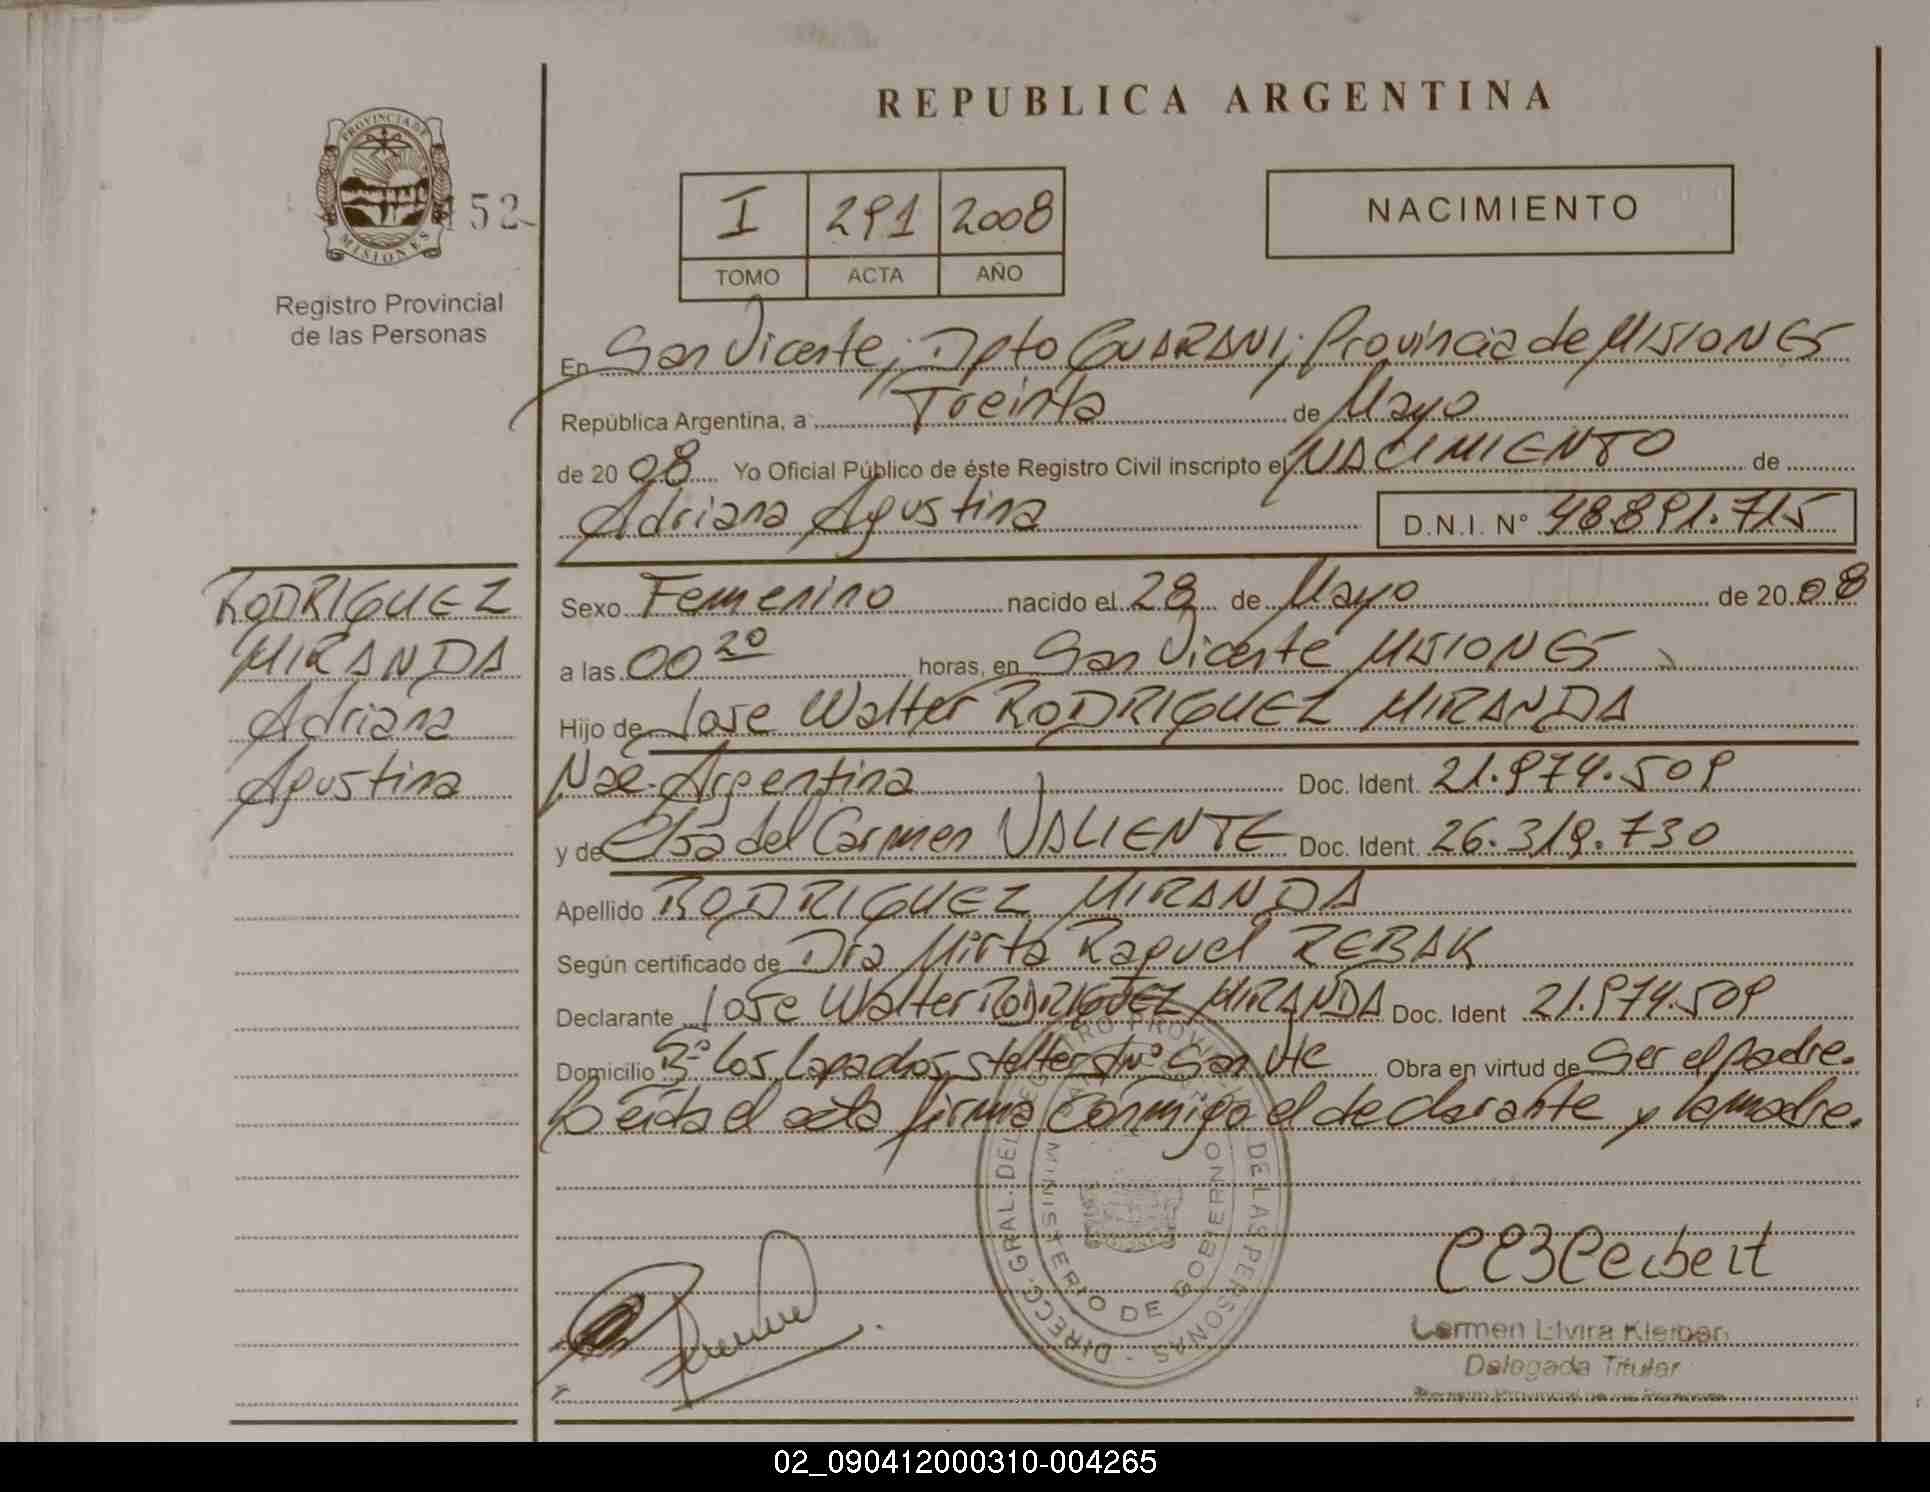 REPUBLICA ARGENTINA
PROVINCIA DE
MISIONES
152
Registro Provincial
de las Personas
I 291 2008
TOMO ACTA AÑO
NACIMIENTO
En San Vicente; Dpto GUARANI; Provincia de MISIONES
República Argentina, a Treinta de Mayo
de 20 08 Yo Oficial Público de éste Registro Civil inscripto el NACIMIENTO de
Adriana Agustina D.N.I. N° 48.891.715
RODRIGUEZ
MIRANDA
Adriana
Agustina
Sexo Femenino nacido el 28 de Mayo de 20 08
a las 00 20 horas, en San Vicente MISIONES
Hijo de Jose Walter RODRIGUEZ MIRANDA
Nac. Argentina Doc. Ident. 21.974.509
y de Elsa del Carmen VALIENTE Doc. Ident. 26.319.730
Apellido RODRIGUEZ MIRANDA
Según certificado de Dra Mirta Raquel REBAK
Declarante Jose Walter RODRIGUEZ MIRANDA Doc. Ident 21.974.509
Domicilio Bº Los Lapachos San Vte Obra en virtud de Ser el padre.
Leída el acta firma conmigo el declarante y la madre.
DIRECC. GRAL. DEL REGISTRO PROVINCIAL DE LAS PERSONAS
MINISTERIO DE GOBIERNO
Carmen Elvira
Delegada Titular
Registro Provincial de las Personas
02_090412000310-004265